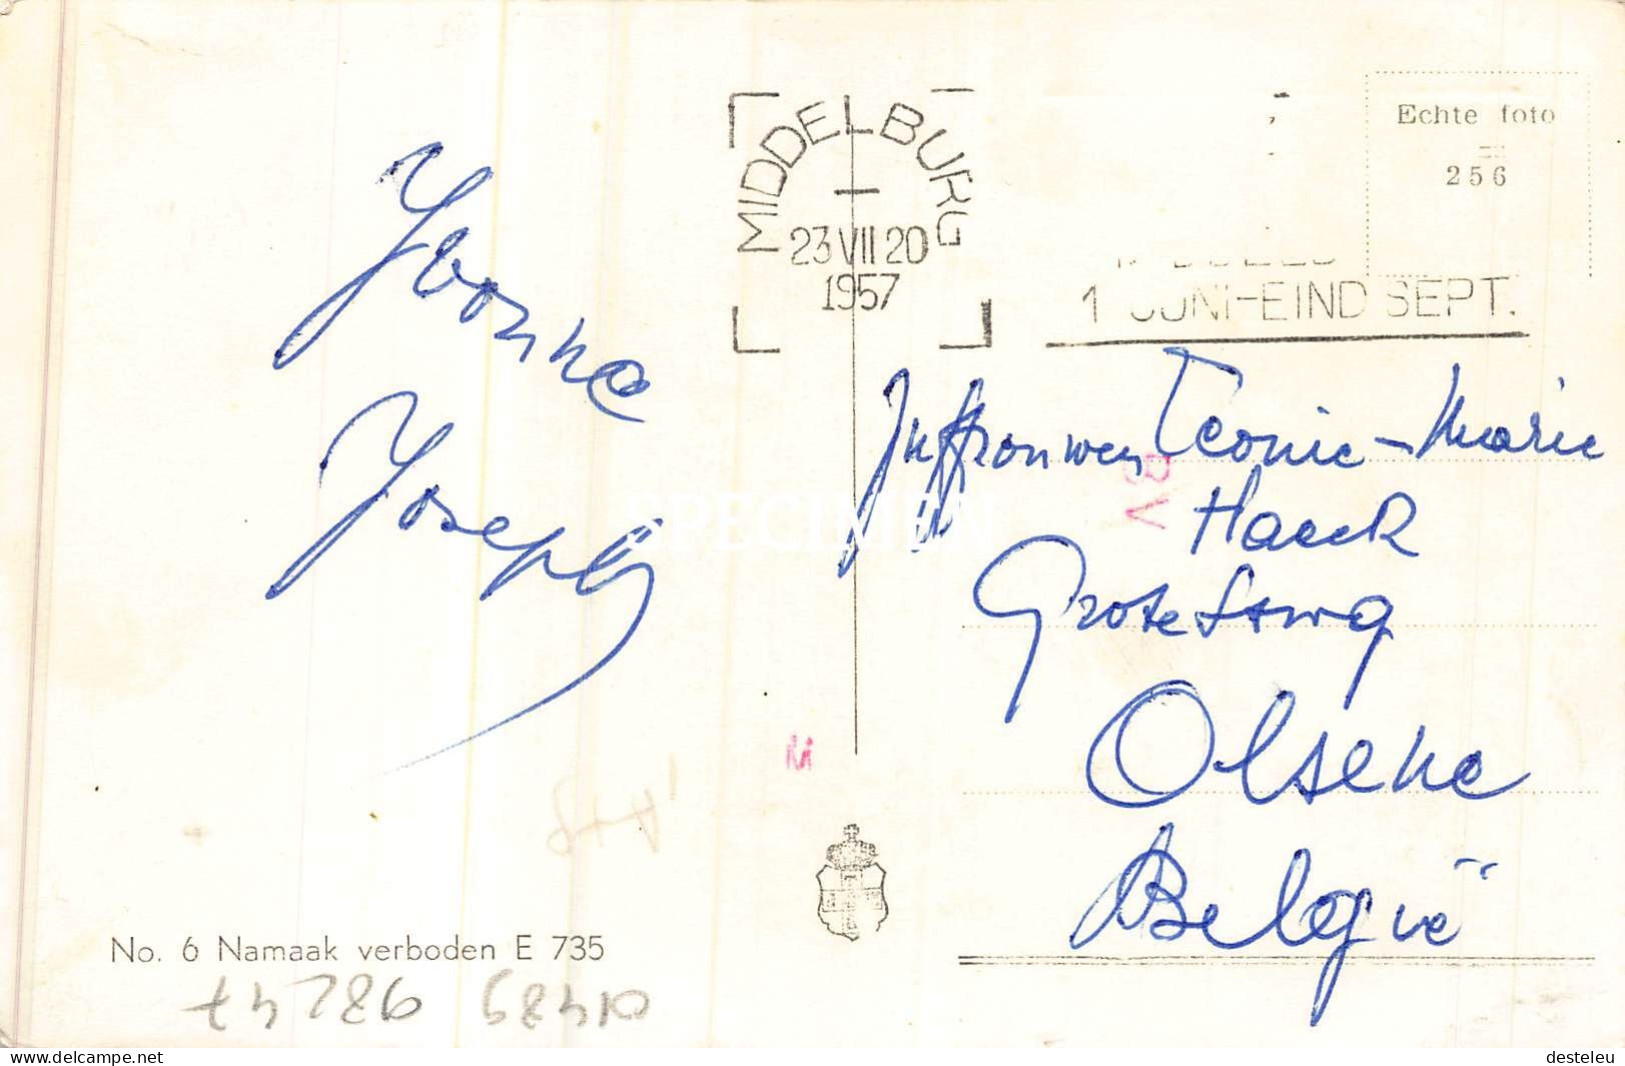 MIDDELBURG
23 VII 20
1957
1 JUNI-EIND SEPT.
Echte foto
256
Yvonne
Joseph
Juffrouwen Leonie-Marie
Haeck
Grotestwg
Olsene
België
BV
SPECIMEN
No. 6 Namaak verboden E 735
01489 98247
https://www.delcampe.net
desteleu